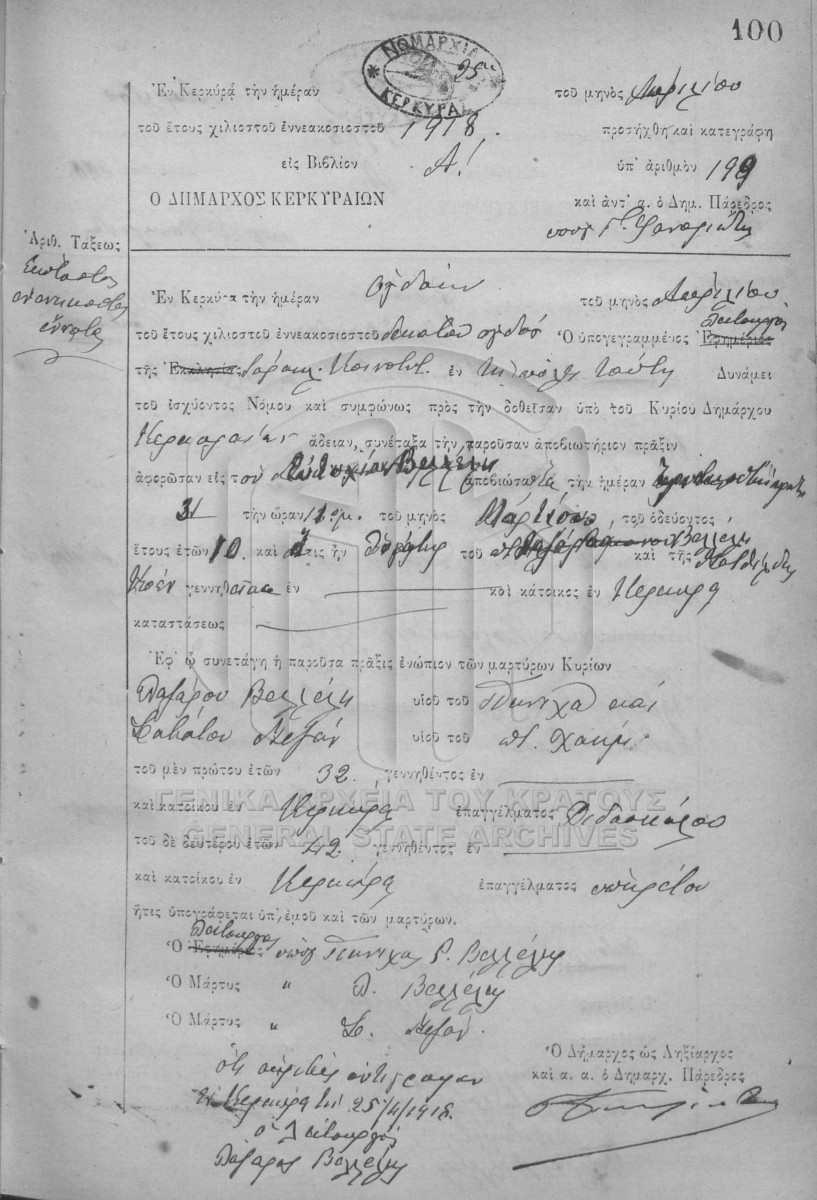 100
ΝΟΜΑΡΧΙΑ ΚΕΡΚΥΡΑΣ
Ἐν Κερκύρᾳ τὴν ἡμέραν 25ην τοῦ μηνὸς Ἀπριλίου
τοῦ ἔτους χιλιοστοῦ ἐννεακοσιοστοῦ 1918. προσήχθη καὶ κατεγράφη
εἰς Βιβλίον Α! ὑπ' ἀριθμὸν 199
Ο ΔΗΜΑΡΧΟΣ ΚΕΡΚΥΡΑΙΩΝ καὶ ἀντ' α. ὁ Δημ. Πάρεδρος
Ἀριθ. Τάξεως
Ἑκατοστὸς
ἐνενηκοστὸς
ἔννατος
Ἐν Κερκύρᾳ τὴν ἡμέραν ὀγδόην τοῦ μηνὸς Ἀπριλίου
τοῦ ἔτους χιλιοστοῦ ἐννεακοσιοστοῦ δεκάτου ὀγδόου Ὁ ὑπογεγραμμένος Ἐφημέριος Λειτουργὸς
τῆς Ἐκκλησίας Ἰσραηλ. Κοινότητ. ἐν τῇ πόλει ταύτῃ Δυνάμει
τοῦ ἰσχύοντος Νόμου καὶ συμφώνως πρὸς τὴν δοθεῖσαν ὑπὸ τοῦ Κυρίου Δημάρχου
Κερκυραίων ἄδειαν, συνέταξα τὴν παροῦσαν ἀποβιωτήριον πρᾶξιν
ἀφορῶσαν εἰς τὸν Βελλέλη ἀποβιώσαντα τὴν ἡμέραν
31 τὴν ὥραν τοῦ μηνὸς Μαρτίου, τοῦ ὁδεύοντος
ἔτους ἐτῶν 10. καὶ τις ἦν τοῦ Βελλέλη καὶ τῆς Ματθίλδης
Κοὲν γεννηθεῖσα ἐν καὶ κάτοικος ἐν Κερκύρᾳ
καταστάσεως
Ἐφ' ᾧ συνετάγη ἡ παροῦσα πρᾶξις ἐνώπιον τῶν μαρτύρων Κυρίων
Λαζάρου Βελλέλη υἱοῦ τοῦ Πινχα καὶ
Σαβάτου υἱοῦ τοῦ Χαήμ
τοῦ μὲν πρώτου ἐτῶν 32. γεννηθέντος ἐν
καὶ κατοίκου ἐν Κερκύρᾳ ἐπαγγέλματος Διδασκάλου
τοῦ δὲ δευτέρου ἐτῶν 42. γεννηθέντος ἐν
καὶ κατοίκου ἐν Κερκύρᾳ ἐπαγγέλματος ὑπηρέτου
ἥτις ὑπογράφεται ὑπ' ἐμοῦ καὶ τῶν μαρτύρων.
Ὁ Ἐφημέριος Λειτουργὸς Πινχας Ρ. Βελλέλης
Ὁ Μάρτυς " Λ. Βελλέλης
Ὁ Μάρτυς " Σ.
Ὁ Δήμαρχος ὡς Ληξίαρχος
καὶ α. α. ὁ Δημαρχ. Πάρεδρος
ὅτι ἀκριβὲς ἀντίγραφον
Ἐν Κερκύρᾳ τῇ 25/4/1918.
ὁ Λειτουργὸς
Λάζαρος Βελλέλης
ΓΕΝΙΚΑ ΑΡΧΕΙΑ ΤΟΥ ΚΡΑΤΟΥΣ
GENERAL STATE ARCHIVES